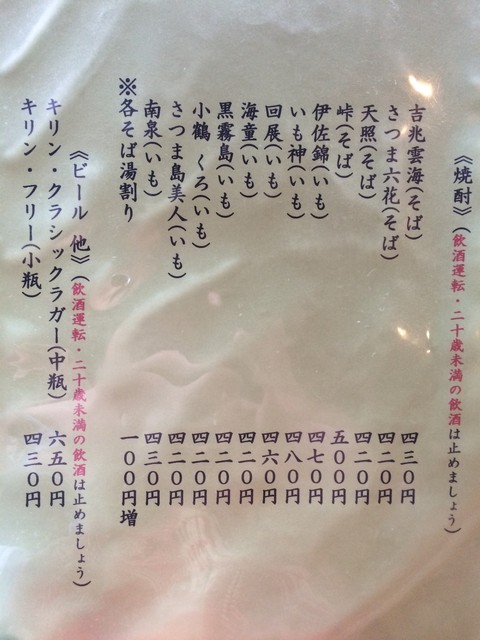 《焼酎》(飲酒運転・二十歳未満の飲酒は止めましょう)
吉兆雲海(そば) 四三〇円
さつま六花(そば) 四二〇円
天照(そば) 四二〇円
峠(そば) 五〇〇円
伊佐錦(いも) 四七〇円
いも神(いも) 四八〇円
回展(いも) 四六〇円
海童(いも) 四二〇円
黒霧島(いも) 四二〇円
小鶴 くろ(いも) 四二〇円
さつま島美人(いも) 四二〇円
南泉(いも) 四三〇円
※各そば湯割り 一〇〇円増
《ビール 他》(飲酒運転・二十歳未満の飲酒は止めましょう)
キリン・クラシックラガー(中瓶) 六五〇円
キリン・フリー(小瓶) 四三〇円